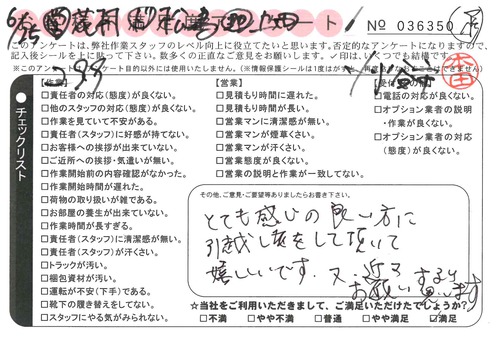 No 036350
このアンケートは、弊社作業スタッフのレベル向上に役立てたいと思います。否定的なアンケートになりますので、
記入後シールを上に貼って下さい。数多くの正直なご意見をお願いします。✓印は、いくつでも結構です。
チェックリスト
□責任者の対応(態度)が良くない。
□他のスタッフの対応(態度)が良くない。
□作業を見ていて不安がある。
□責任者(スタッフ)に好感が持てない。
□お客様への挨拶が出来ていない。
□ご近所への挨拶・気遣いが無い。
□作業開始前の内容確認がなかった。
□作業開始時間が遅れた。
□荷物の取り扱いが雑である。
□お部屋の養生が出来ていない。
□作業時間が長すぎる。
□責任者(スタッフ)に清潔感が無い。
□責任者(スタッフ)が汗くさい。
□トラックが汚い。
□梱包資材が汚い。
□運転が不安(下手)である。
□靴下の履き替えをしてない。
□スタッフにやる気がみられない。
【営業】
□見積もり時間に遅れた。
□見積もり時間が長い。
□営業マンに清潔感が無い。
□営業マンが煙草くさい。
□営業マンが汗くさい。
□営業態度が良くない。
□営業の説明と作業が一致してない。
□電話の対応が良くない。
□オプション業者の説明
・作業が良くない。
□オプション業者の対応
(態度)が良くない。
その他、ご意見・ご要望等ありましたらお書き下さい。
とても感じの良い方に
引越し装をして頂いて
嬉しいです。又、近々
するり
お願い思います
☆当社をご利用いただきまして、ご満足いただけたでしょうか?
□不満 □やや不満 □普通 □やや満足 □満足